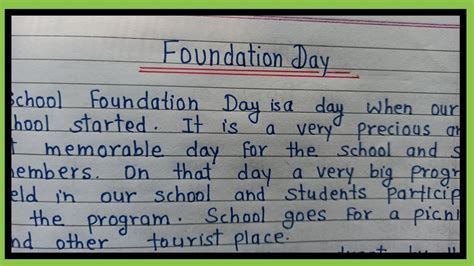 Foundation Day
School Foundation Day is a day when our
hool started. It is a very precious an
t memorable day for the school and s
embers. On that day a very big progr
eld in our school and students particip
the program. School goes for a picni
nd other tourist place.